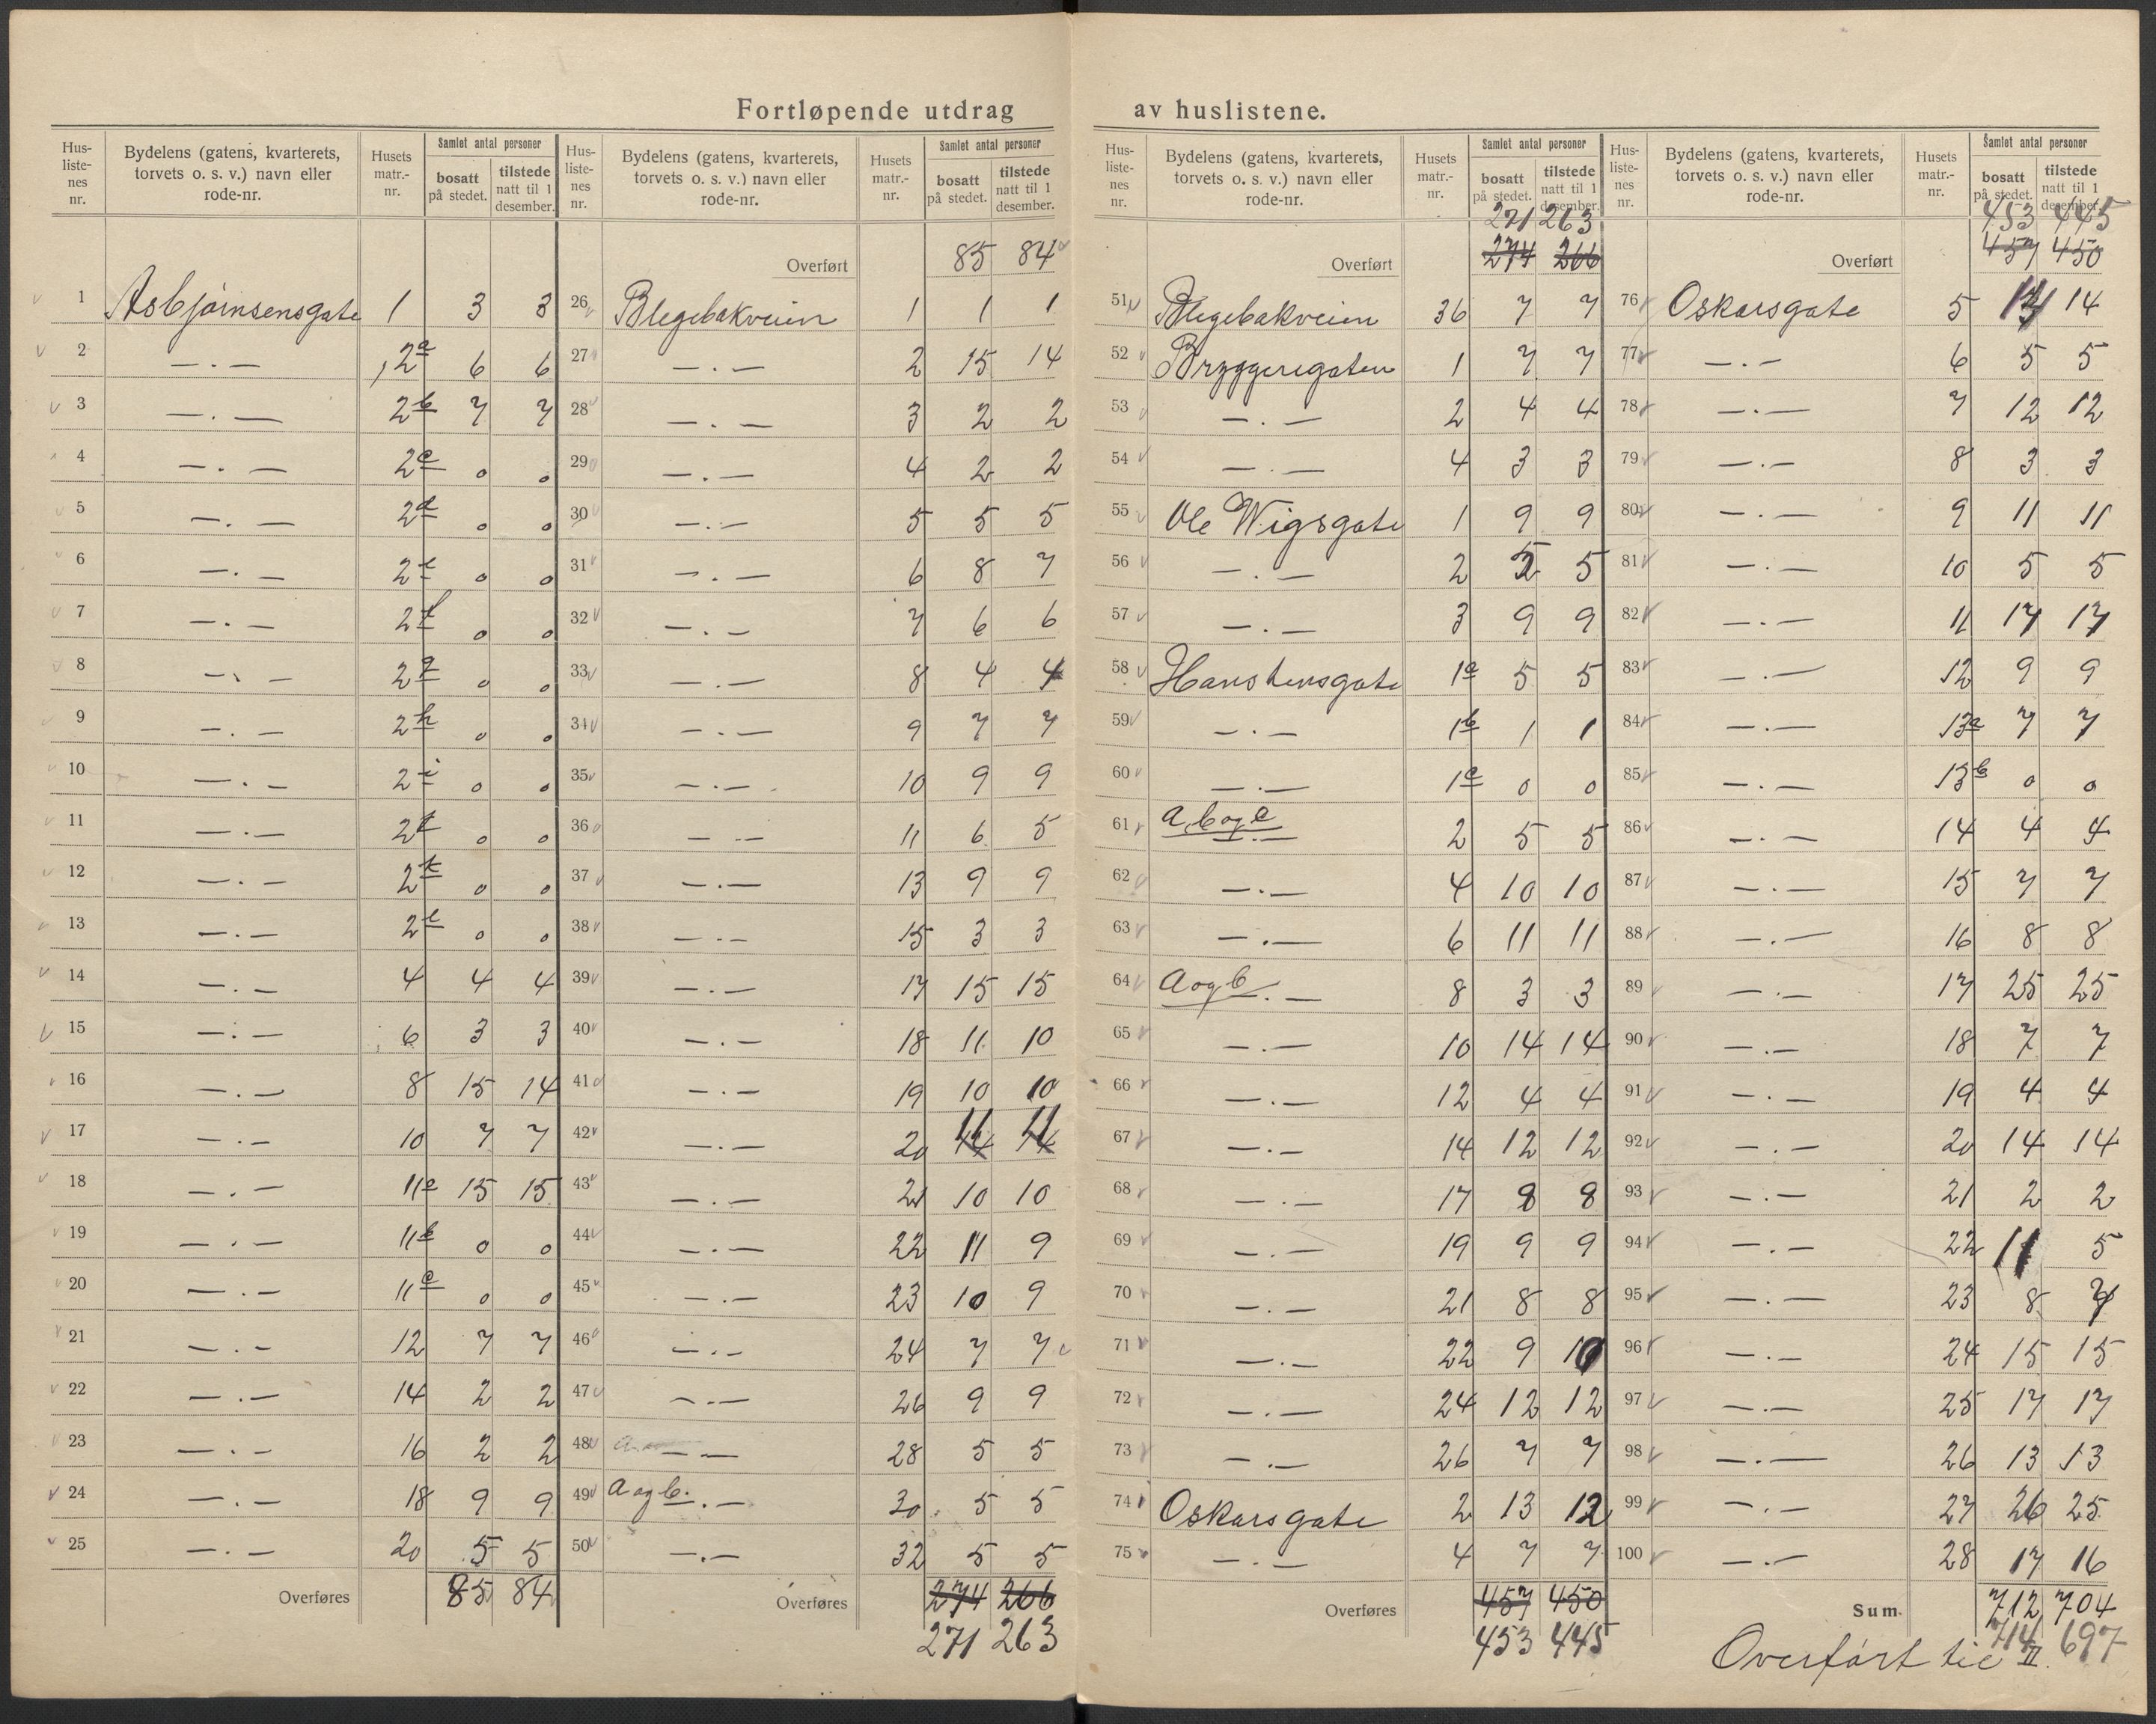 Fortløpende utdrag av huslistene.
Hus-listenes nr. Bydelens (gatens, kvarterets, torvets o. s. v.) navn eller rode-nr. Husets matr.-nr. Samlet antal personer bosatt på stedet. tilstede natt til 1 desember.
1 Asbjørnsensgate 1 3 3
2 —.— 2a 6 6
3 —.— 2b 7 7
4 —.— 2c 0 0
5 —.— 2d 0 0
6 —.— 2e 0 0
7 —.— 2f 0 0
8 —.— 2g 0 0
9 —.— 2h 0 0
10 —.— 2i 0 0
11 —.— 2 0 0
12 —.— 2k 0 0
13 —.— 2l 0 0
14 —.— 4 4 4
15 —.— 6 3 3
16 —.— 8 15 14
17 —.— 10 7 7
18 —.— 11a 15 15
19 —.— 11b 0 0
20 —.— 11c 0 0
21 —.— 12 7 7
22 —.— 14 2 2
23 —.— 16 2 2
24 —.— 18 9 9
25 —.— 20 5 5
Overføres 85 84
Hus-listenes nr. Bydelens (gatens, kvarterets, torvets o. s. v.) navn eller rode-nr. Husets matr.-nr. Samlet antal personer bosatt på stedet. tilstede natt til 1 desember.
Overført 85 84
26 Blegebakveien 1 1 1
27 —.— 2 15 14
28 —.— 3 2 2
29 —.— 4 2 2
30 —.— 5 5 5
31 —.— 6 8 7
32 —.— 7 6 6
33 —.— 8 4 4
34 —.— 9 7 7
35 —.— 10 9 9
36 —.— 11 6 5
37 —.— 13 9 9
38 —.— 15 3 3
39 —.— 17 15 15
40 —.— 18 11 10
41 —.— 19 10 10
42 —.— 20 11 11
43 —.— 21 10 10
44 —.— 22 11 9
45 —.— 23 10 9
46 —.— 24 7 7
47 —.— 26 9 9
48 —.— 28 5 5
49 a og b. —.— 30 5 5
50 —.— 32 5 5
Overføres 274 266
271 263
Hus-listenes nr. Bydelens (gatens, kvarterets, torvets o. s. v.) navn eller rode-nr. Husets matr.-nr. Samlet antal personer bosatt på stedet. tilstede natt til 1 desember.
271 263
Overført 274 266
51 Blegebakveien 36 7 7
52 Bryggerigaten 1 7 7
53 —.— 2 4 4
54 —.— 4 3 3
55 Ole Wigsgate 1 9 9
56 —.— 2 5 5
57 —.— 3 9 9
58 Hanstensgate 1a 5 5
59 —.— 1b 1 1
60 —.— 1c 0 0
61 a, b og c —.— 2 5 5
62 —.— 4 10 10
63 —.— 6 11 11
64 a og b —.— 8 3 3
65 —.— 10 14 14
66 —.— 12 4 4
67 —.— 14 12 12
68 —.— 17 8 8
69 —.— 19 9 9
70 —.— 21 8 8
71 —.— 22 9 10
72 —.— 24 12 12
73 —.— 26 7 7
74 Oskarsgate 2 13 12
75 —.— 4 7 7
Overføres 457 450
453 445
Hus-listenes nr. Bydelens (gatens, kvarterets, torvets o. s. v.) navn eller rode-nr. Husets matr.-nr. Samlet antal personer bosatt på stedet. tilstede natt til 1 desember.
453 445
Overført 457 450
76 Oskarsgate 5 14
77 —.— 6 5 5
78 —.— 7 12 12
79 —.— 8 3 3
80 —.— 9 11 11
81 —.— 10 5 5
82 —.— 11 17 17
83 —.— 12 9 9
84 —.— 13a 7 7
85 —.— 13b 0 0
86 —.— 14 4 4
87 —.— 15 7 7
88 —.— 16 8 8
89 —.— 17 25 25
90 —.— 18 7 7
91 —.— 19 4 4
92 —.— 20 14 14
93 —.— 21 2 2
94 —.— 22 11 5
95 —.— 23 8 7
96 —.— 24 15 15
97 —.— 25 17 17
98 —.— 26 13 13
99 —.— 27 26 25
100 —.— 28 17 16
Sum. 712 704
714 697
Overført til II.